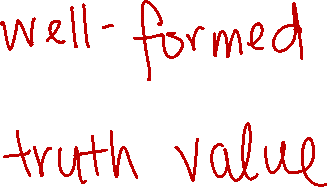 well-formed
truth value